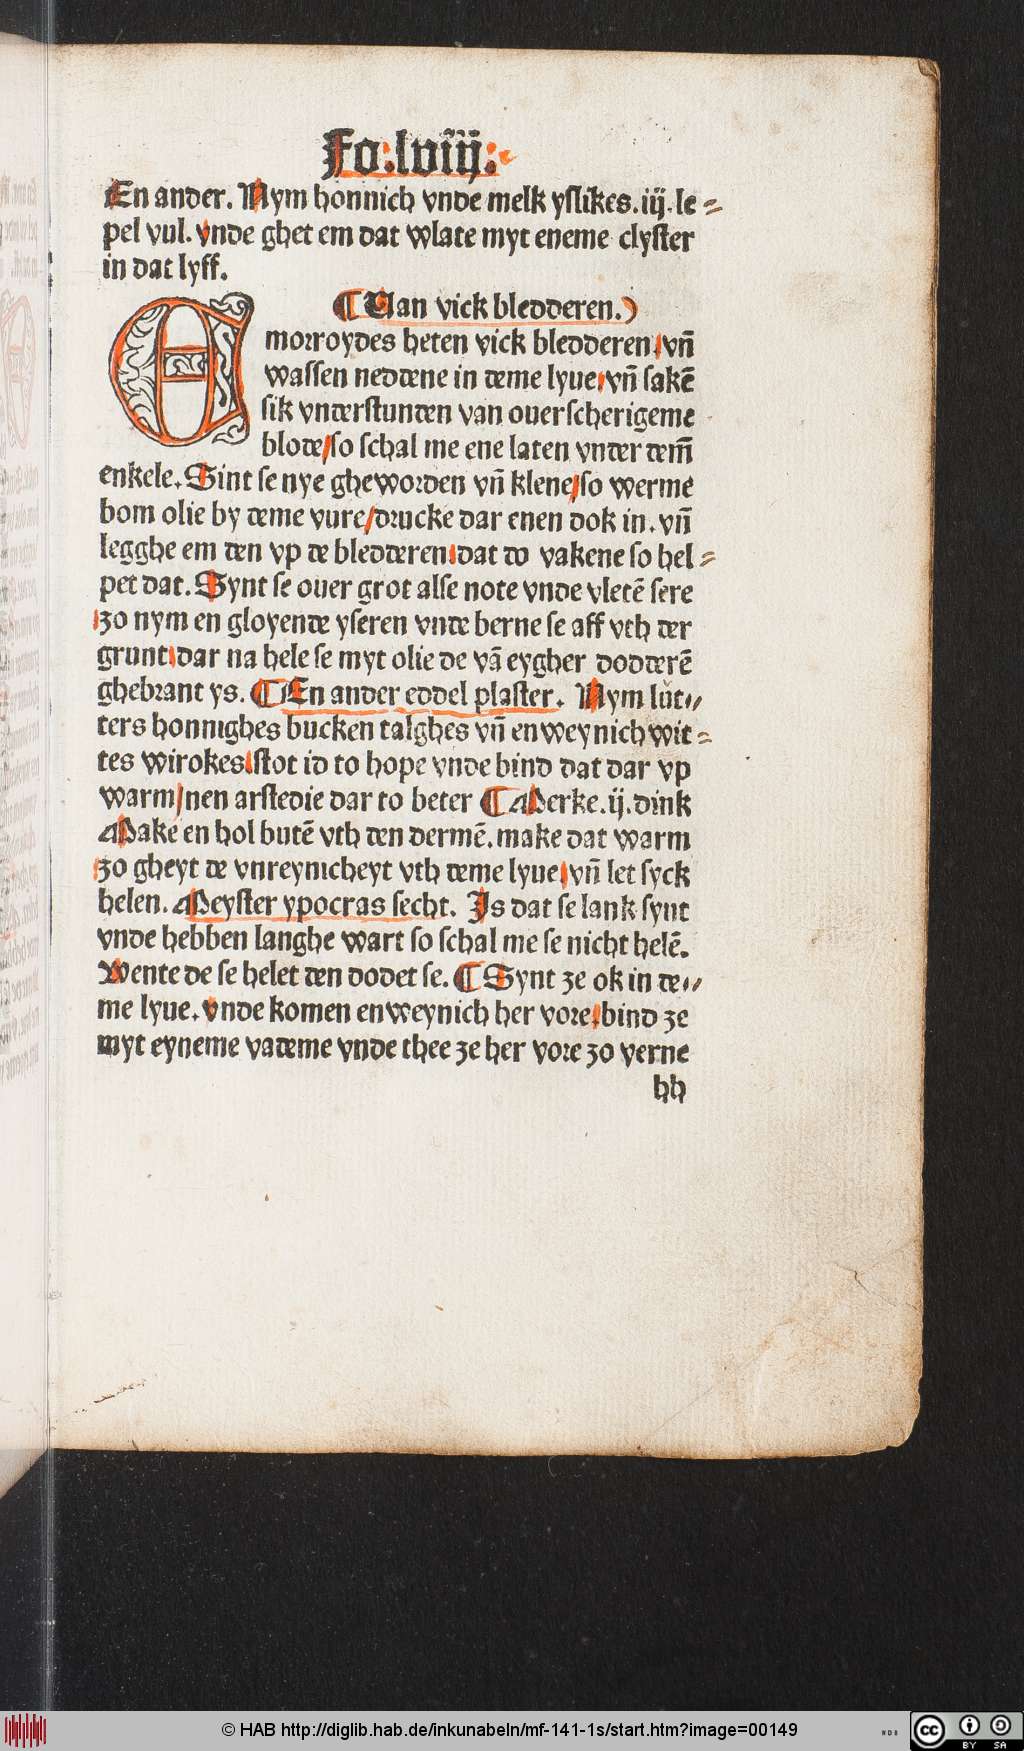 Fo.lviij.
En ander. Nym honnich vnde melk yſlikes.iij.le⸗
pel vul. vnde ghet em dat wlate myt eneme clyſter
in dat lyff.
¶ Uan vick bledderen.
Emorroydes heten vick bledderen/vn̄
waſſen neddene in deme lyue/vn̄ ſakē
ſik vnderſtunden van ouerſcherigeme
blode/ſo ſchal me ene laten vnder dem̄
enkele. Sint ſe nye gheworden vn̄ klene/ſo werme
bom olie by deme vure/drucke dar enen dok in. vn̄
legghe em den vp de bledderen/dat do vakene ſo hel⸗
pet dat. Synt ſe ouer grot alſe note vnde vletē ſere
zo nym en gloyende yſeren vnde berne ſe aff vth der
grunt/dar na hele ſe myt olie de vā eygher dodderē
ghebrant ys. ¶ En ander eddel plaſter. Nym lut⸗
ters honnighes bucken talghes vn̄ en weynich wit⸗
tes wirokes/ſtot id to hope vnde bind dat dar vp
warm/nen arſtedie dar to beter ¶ Merke.ij.dink
Make en hol butē vth den dermē. make dat warm
zo gheyt de vnreynicheyt vth deme lyue/vn̄ let ſyck
helen. Meyſter ypocras ſecht. Is dat ſe lank ſynt
vnde hebben langhe wart ſo ſchal me ſe nicht helē.
Wente de ſe helet den dodet ſe. ¶ Synt ze ok in de⸗
me lyue. vnde komen en weynich her vore/bind ze
myt eyneme vademe vnde thee ze her vore zo verne
hh
© HAB http://diglib.hab.de/inkunabeln/mf-141-1s/start.htm?image=00149
WDB
cc BY SA